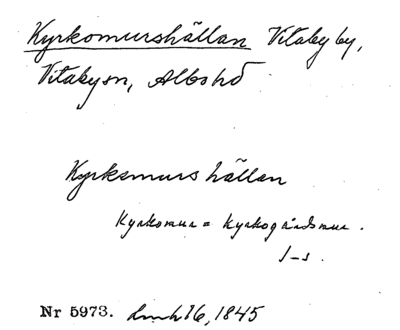 Kyrkomurshällan Vitaby by,
Vitabysn, Albohd
Kyrkomurshällan
Kyrkomur = Kyrkogårdsmur.
1-s.
Nr 5973. Lmh 16, 1845